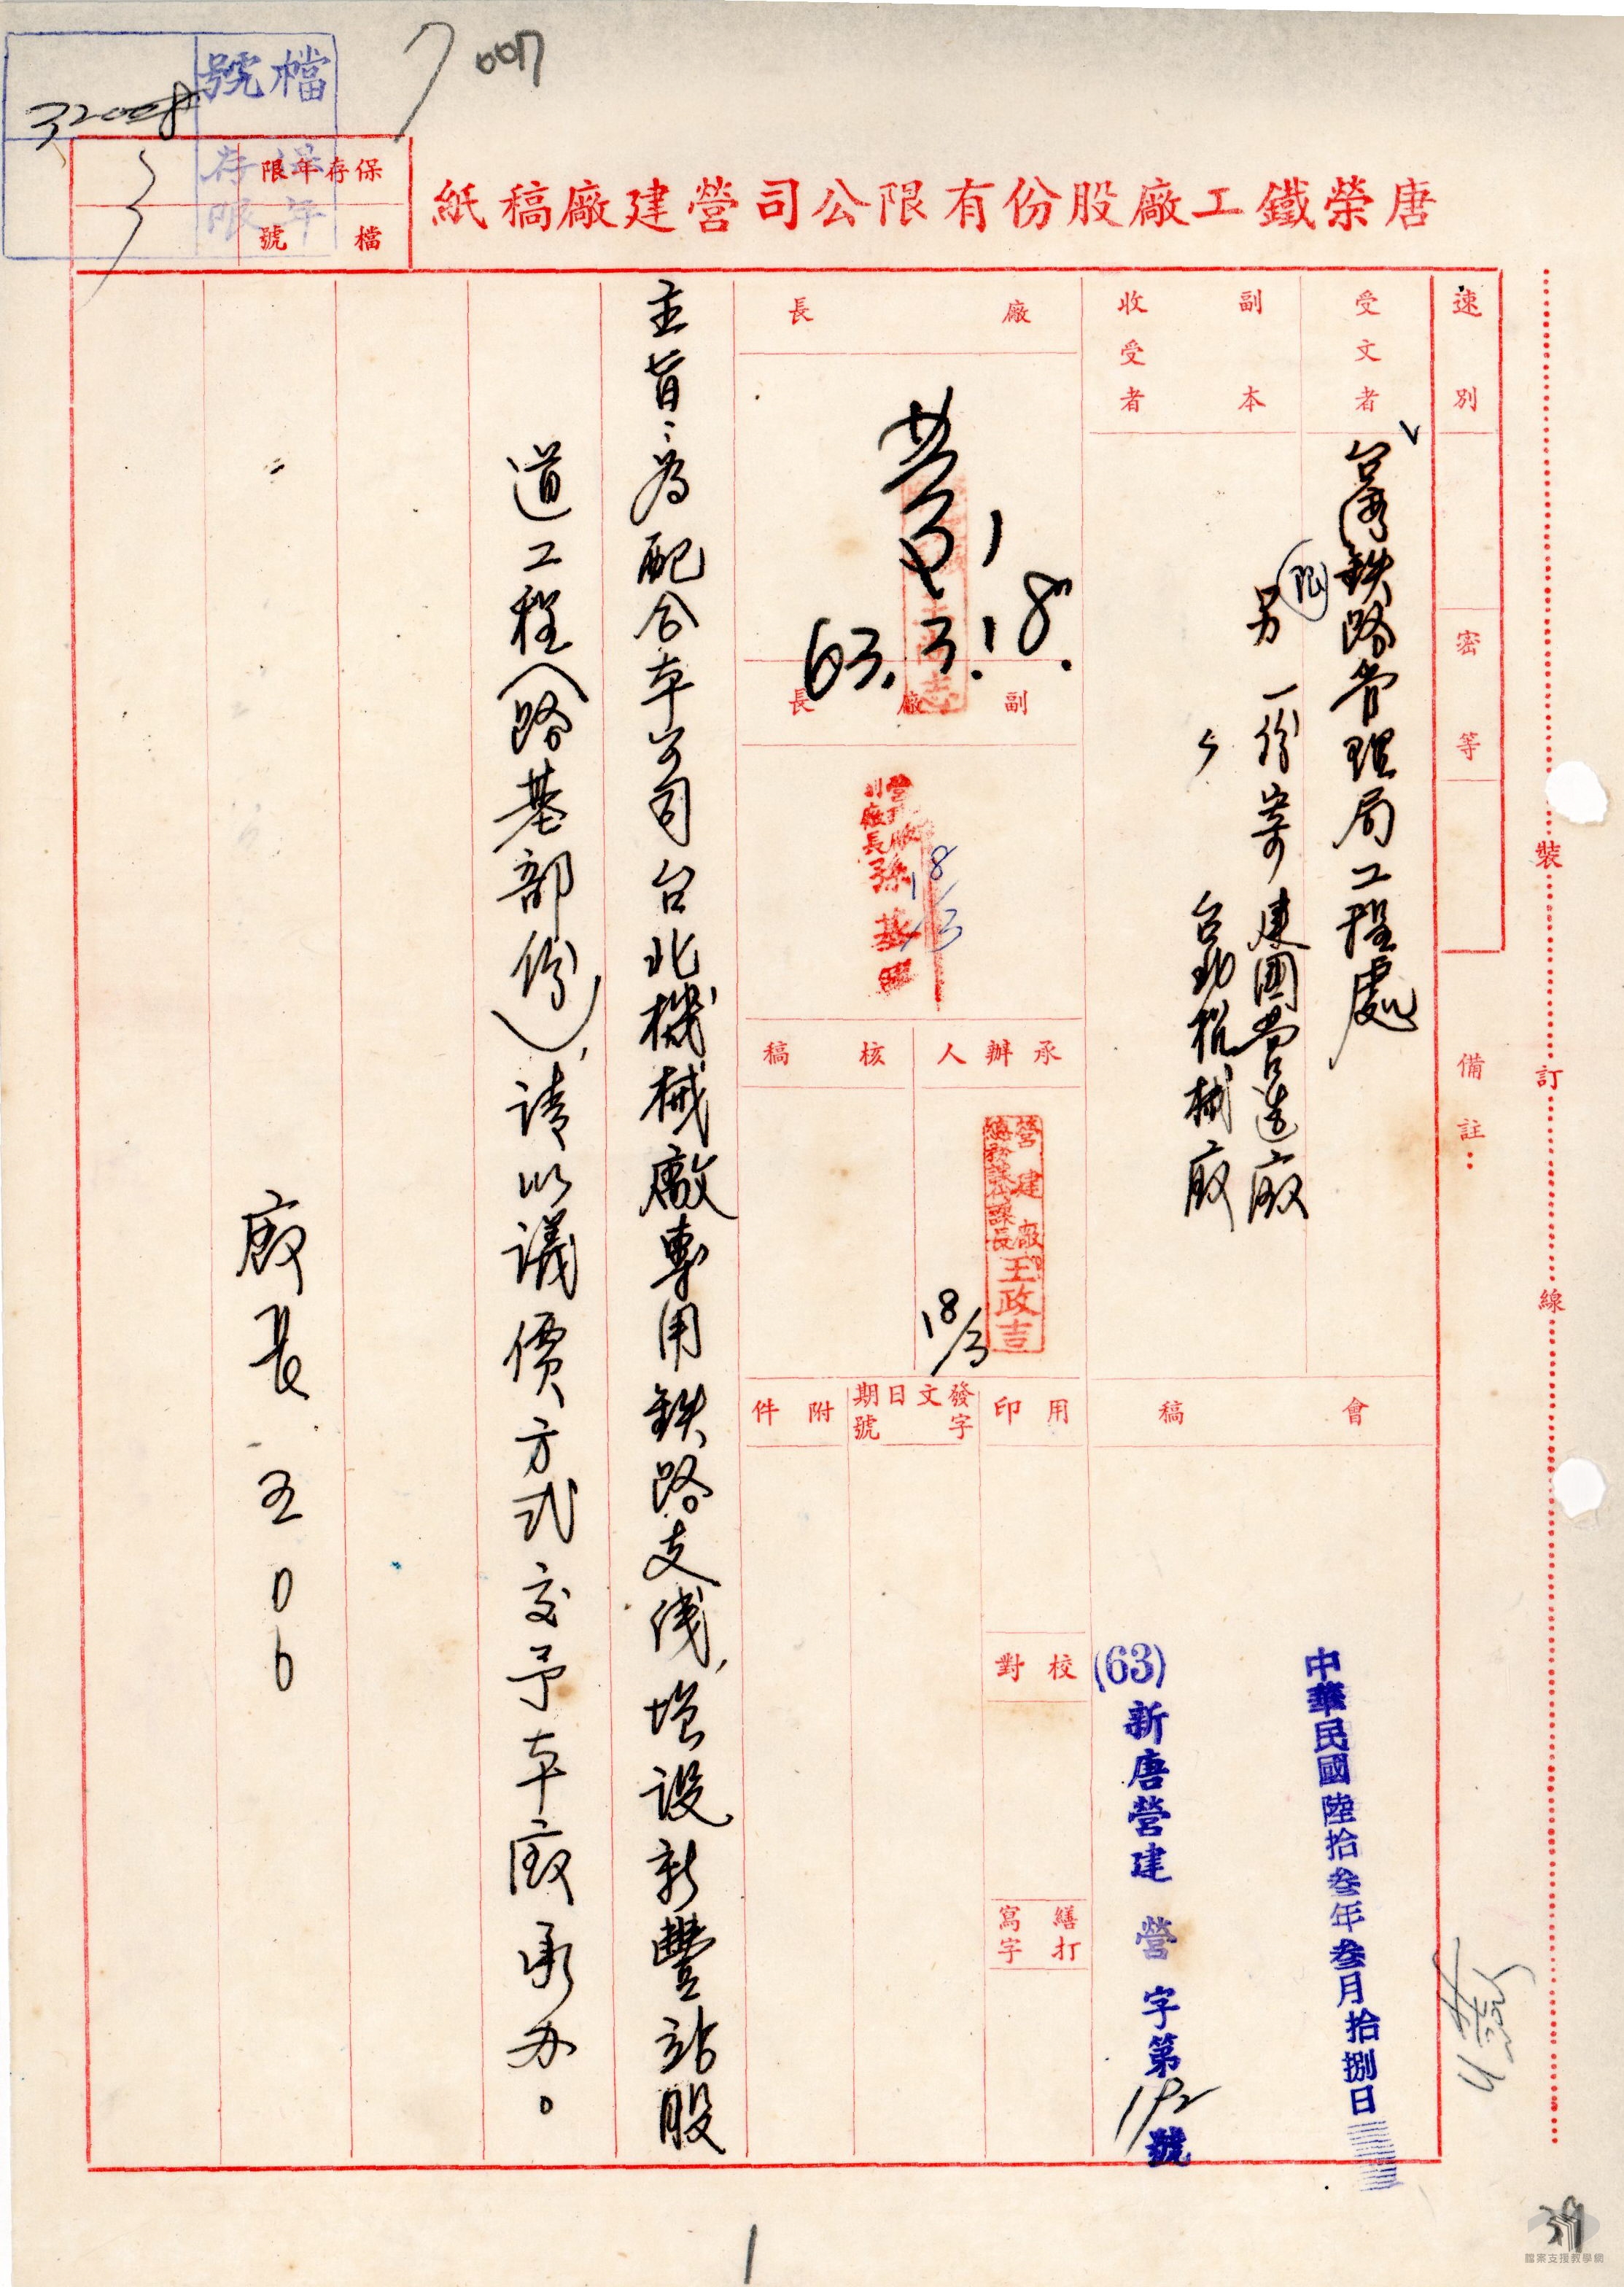 檔號
保存年限
32008
7
007
保存年限
檔號
3
唐榮鐵工廠股份有限公司營建廠稿紙
速別
密等
備註：
受文者
台灣鉄路管理局工程處
副本收受者
另一份寄建國营造廠
台北机械廠
廠長
63.3.18.
副廠長
營建廠
副廠長孫基
18/3
承辦人
核稿
營建廠
總務課代課長王政吉
18/3
會稿
用印
發文日期字號
附件
校對
繕打寫字
中華民國陸拾叁年叁月拾捌日
(63)新唐營建 營 字第192號
主旨：為配合本公司台北機械廠專用鉄路支线，增設新豐站股
道工程（路基部份），請以議價方式交予本廠承办。
廠長 王〇〇
裝
訂
線
1
39
檔案支援教學網